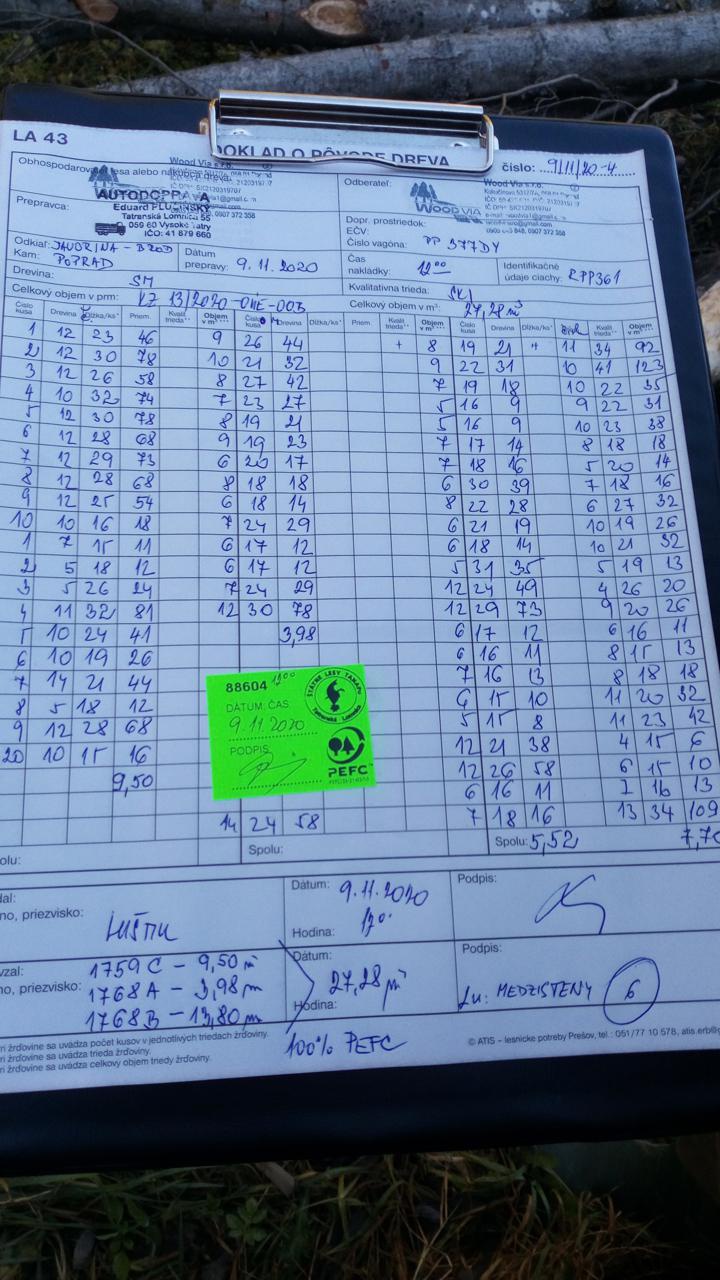 LA 43
DOKLAD O PÔVODE DREVA
číslo: 9/11/20-4
Wood Via s.r.o.
AUTODOPRAVA
Eduard PLUČINSKÝ
Tatranská Lomnica 55
059 60 Vysoké Tatry
IČO: 41 879 660
Prepravca:
Odberateľ:
WOOD VIA
Wood Via s.r.o.
Dopr. prostriedok:
EČV:
Číslo vagóna: PP 377DY
Odkiaľ: JAVORINA - BROD
Kam: POPRAD
Dátum prepravy: 9.11.2020
Čas nakládky: 12 00
Identifikačné údaje ciachy: RPP361
Drevina: SM
Kvalitatívna trieda:
Celkový objem v prm: VZ 13/2020-OVE-003
Celkový objem v m³: 27,28 m³
Číslo kusa Drevina Dĺžka/ks* Priem. Kvalit. trieda** Objem v m³*** Číslo kusa Drevina Dĺžka/ks* Priem. Kvalit. trieda** Objem v m³ Číslo kusa Drevina Dĺžka/ks* Kvalit. trieda** Objem v m³***
1 12 23 46 9 26 44 + 8 19 21 " 11 34 92
2 12 30 78 10 21 32 9 22 31 10 41 123
3 12 26 58 8 27 42 7 19 18 10 22 35
4 10 32 74 7 23 27 5 16 9 9 22 31
5 12 30 78 8 19 21 5 16 9 10 23 38
6 12 28 68 9 19 23 7 17 14 8 18 18
7 12 29 73 6 20 17 7 18 16 5 20 14
8 12 28 68 8 18 18 6 30 39 7 18 16
9 12 25 54 6 18 14 8 22 28 6 27 32
10 10 16 18 7 24 29 6 21 19 10 19 26
1 7 15 11 6 17 12 6 18 14 10 21 32
2 5 18 12 6 17 12 5 31 35 5 19 13
3 5 26 24 7 24 29 12 24 49 4 26 20
4 11 32 81 12 30 78 12 29 73 9 20 26
5 10 24 41 3,98 6 17 12 6 16 11
6 10 19 26 6 16 11 8 15 13
7 14 21 44 7 16 13 8 18 18
8 5 18 12 6 15 10 11 20 32
9 12 28 68 5 15 8 11 23 42
20 10 15 16 12 21 38 4 15 6
9,50 12 26 58 6 15 10
6 16 11 7 16 13
14 24 58 7 18 16 13 34 109
88604 12 00
ŠTÁTNE LESY TANAPU
Tatranská Lomnica
DÁTUM: ČAS
9.11.2020
PODPIS
PEFC
olu:
Spolu:
Spolu: 5,52
7,70
dal:
no, priezvisko:
Dátum: 9.11.2020
Hodina:
Podpis:
vzal:
no, priezvisko:
1759 C - 9,50 m³
1768 A - 3,98 m³
1768 B - 13,80 m³
Dátum:
27,28 m³
Hodina:
Podpis:
LU: MEDZISTENY 6
ri žrďovine sa uvádza počet kusov v jednotlivých triedach žrďoviny.
ri žrďovine sa uvádza trieda žrďoviny.
ri žrďovine sa uvádza celkový objem triedy žrďoviny.
100% PEFC
© ATIS – lesnícke potreby Prešov, tel.: 051/77 10 578, atis.erb@